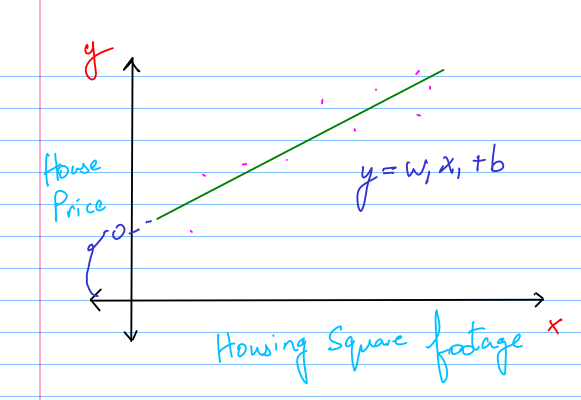 y
House
Price
y = w₁x₁ + b
Housing Square footage
x